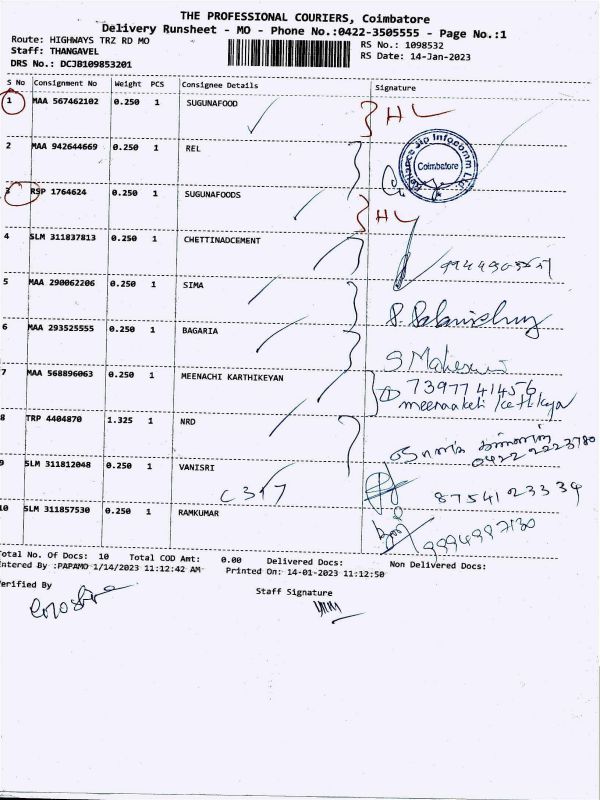 THE PROFESSIONAL COURIERS, Coimbatore
Delivery Runsheet - MO - Phone No.:0422-3505555 - Page No.:1
Route: HIGHWAYS TRZ RD MO
Staff: THANGAVEL
DRS No.: DCJB109853201
RS No.: 1098532
RS Date: 14-Jan-2023
S No Consignment No Weight PCS Consignee Details Signature
1 MAA 567462102 0.250 1 SUGUNAFOOD HL
2 MAA 942644669 0.250 1 REL
Reliance Jio Infocomm Ltd.
Coimbatore
3 RSP 1764624 0.250 1 SUGUNAFOODS HL
4 SLM 311837813 0.250 1 CHETTINADCEMENT
5 MAA 290062206 0.250 1 SIMA
6 MAA 293525555 0.250 1 BAGARIA
7 MAA 568896063 0.250 1 MEENACHI KARTHIKEYAN 7397741456
8 TRP 4404870 1.325 1 NRD 0422 2223780
9 SLM 311812048 0.250 1 VANISRI 8754123334
C 317
10 SLM 311857530 0.250 1 RAMKUMAR 9994997130
Total No. Of Docs: 10 Total COD Amt: 0.00 Delivered Docs: Non Delivered Docs:
Entered By :PAPAMO 1/14/2023 11:12:42 AM Printed On: 14-01-2023 11:12:50
Verified By
Staff Signature